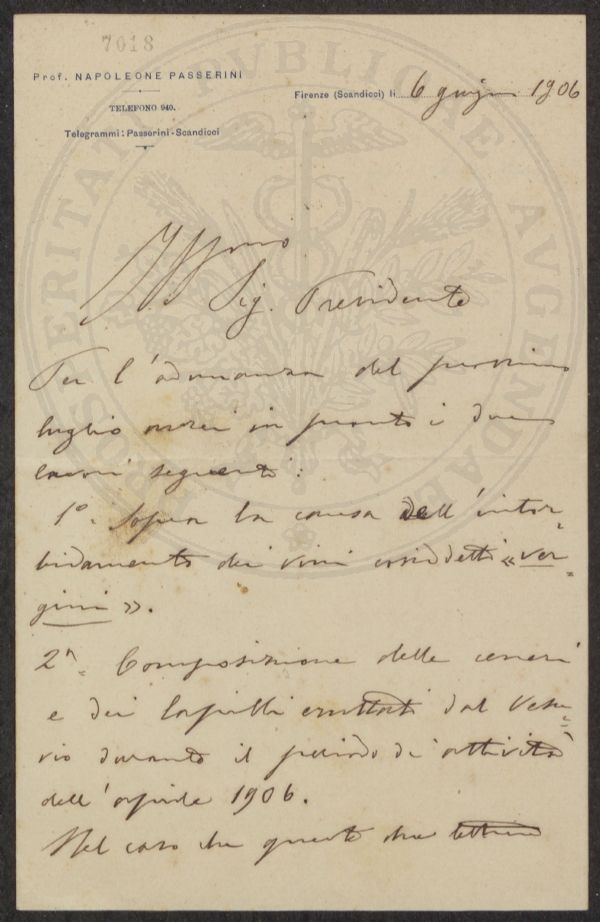 7018
Prof. NAPOLEONE PASSERINI
TELEFONO 940.
Telegrammi: Passerini-Scandicci
Firenze (Scandicci) li 6 giugno 1906
PROSPERITATI PVBLICAE AVGENDAE
Illmo
Sig. Presidente
Per l'adunanza del prossimo
luglio avrei in pronto i due
lavori seguenti:
1°. Sopra la causa dell'intor-
bidamento dei vini cosiddetti «ver-
gini».
2°. Composizione delle ceneri
e dei lapilli eruttati dal Vesu-
vio durante il periodo di attività
dell'aprile 1906.
Nel caso che queste due letture